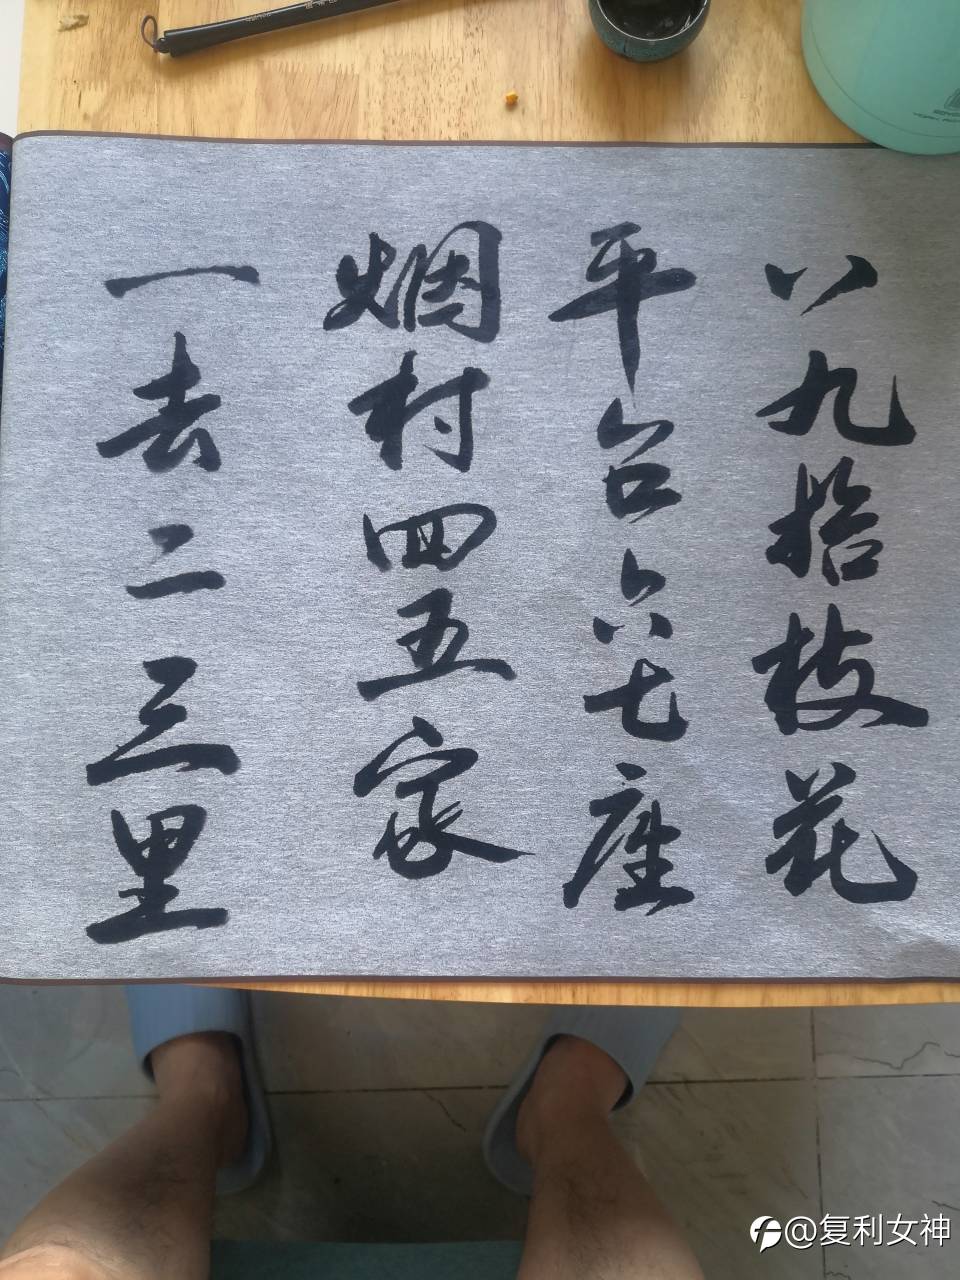 一去二三里
烟村四五家
平台六七座
八九拾枝花
@复利女神